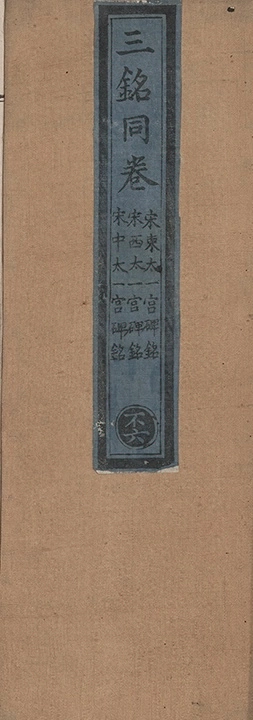 三銘同卷
宋東太一宮碑銘
宋西太一宮碑銘
宋中太一宮碑銘
不六